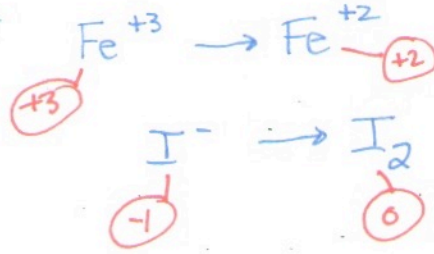 Fe⁺³ → Fe⁺²
+3 +2
I⁻ → I₂
-1 0